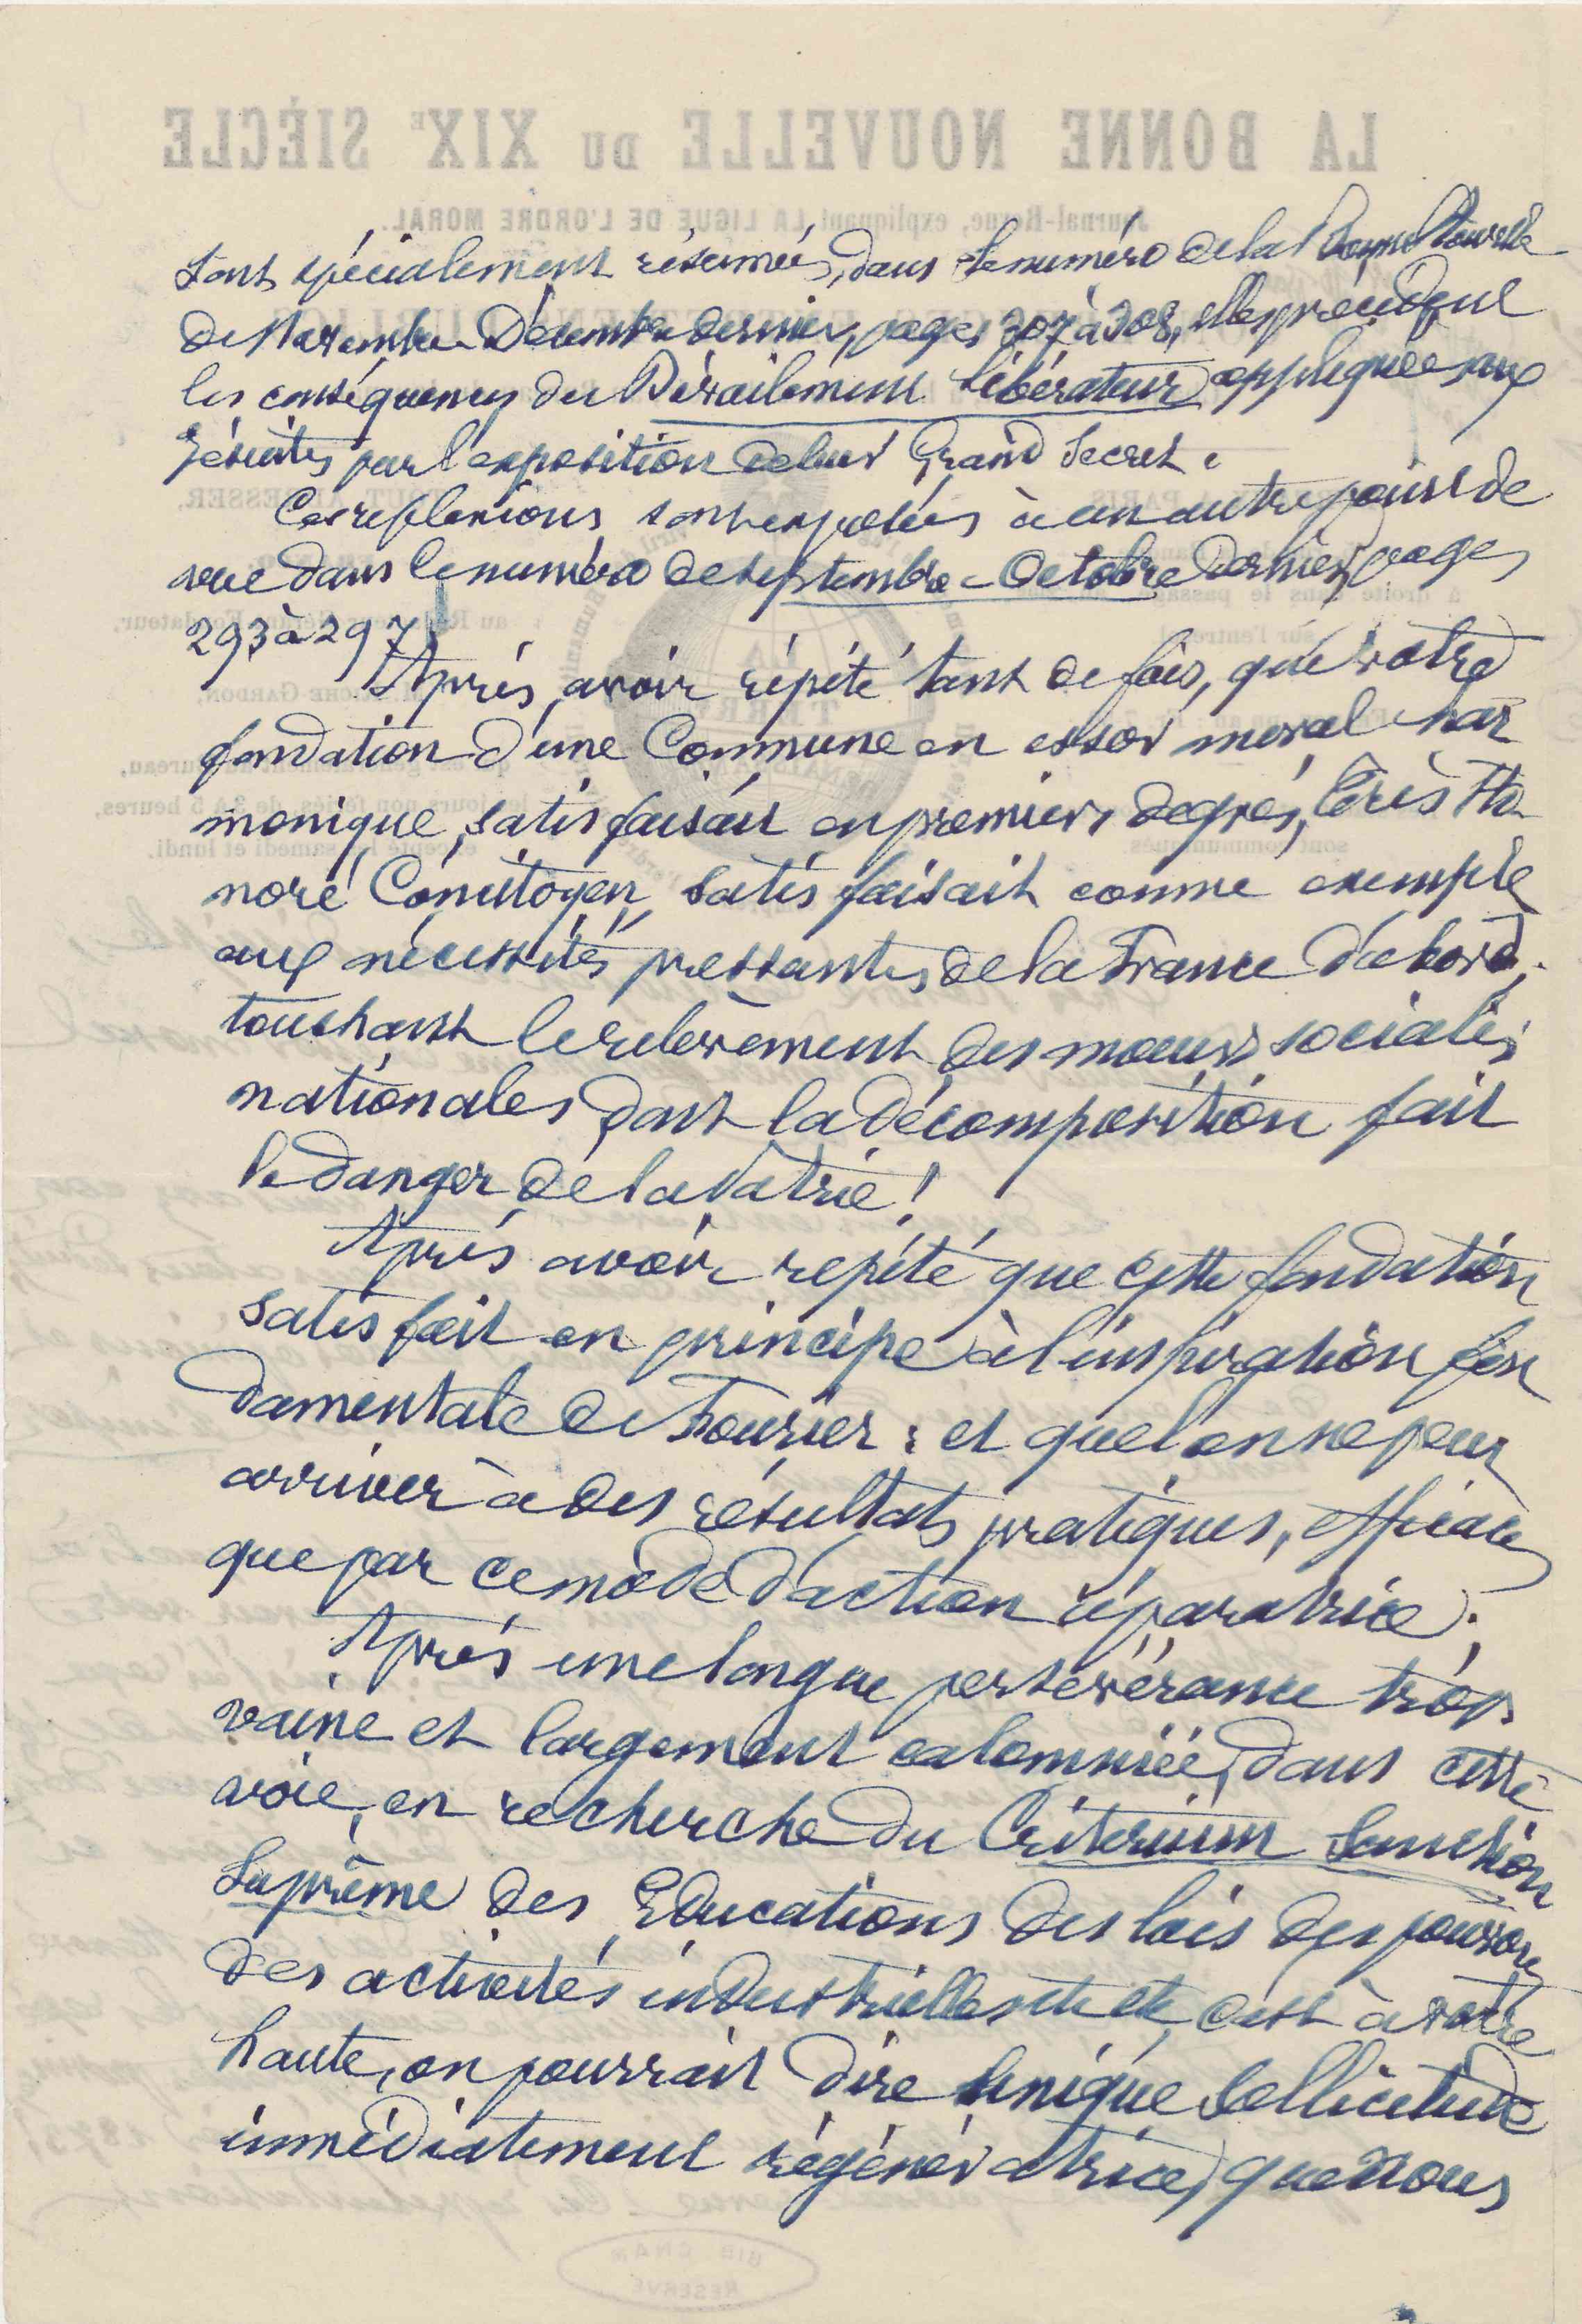 sont spécialement résumées, dans le numéro de la Bonne Nouvelle
de Novembre-Décembre dernier, pages 307 à 308, elles précisent
les conséquences du Déraillement libérateur appliquée aux
Jésuites par l'exposition de leur Grand Secret.
Ces reflexions sont exposées à un autre point de
vue dans le numéro de septembre-Octobre dernier, pages
293 à 297.
Après, avoir répété tant de fois, que votre
fondation d'une Commune en essor moral har
monique, satisfaisait en premiers degrés, Très Ho-
noré Concitoyen, satisfaisait comme exemple
aux nécessités pressantes de la France d'abord,
touchant le relèvement des mœurs sociales,
nationales dont la décomposition fait
le danger de la Patrie !
Après avoir repété que cette fondation
satisfait en principe à l'inspiration fon
damentale de Fourier : et que l'on ne peut
arriver à des résultats pratiques, efficaces
que par ce mode d'action réparatrice ;
Après une longue persévérance trop
vaine et largement calomniée, dans cette
voie, en recherche du Criterium Sanction
Suprême des Educations des lois des pouvoirs
des activités industrielles etc etc, c'est à votre
haute, on pourrait dire unique sollicitude
immédiatement régénératrice, que nous
LA BONNE NOUVELLE DU XIXE SIÈCLE
Journal-Revue, expliquant LA LIGUE DE L'ORDRE MORAL.